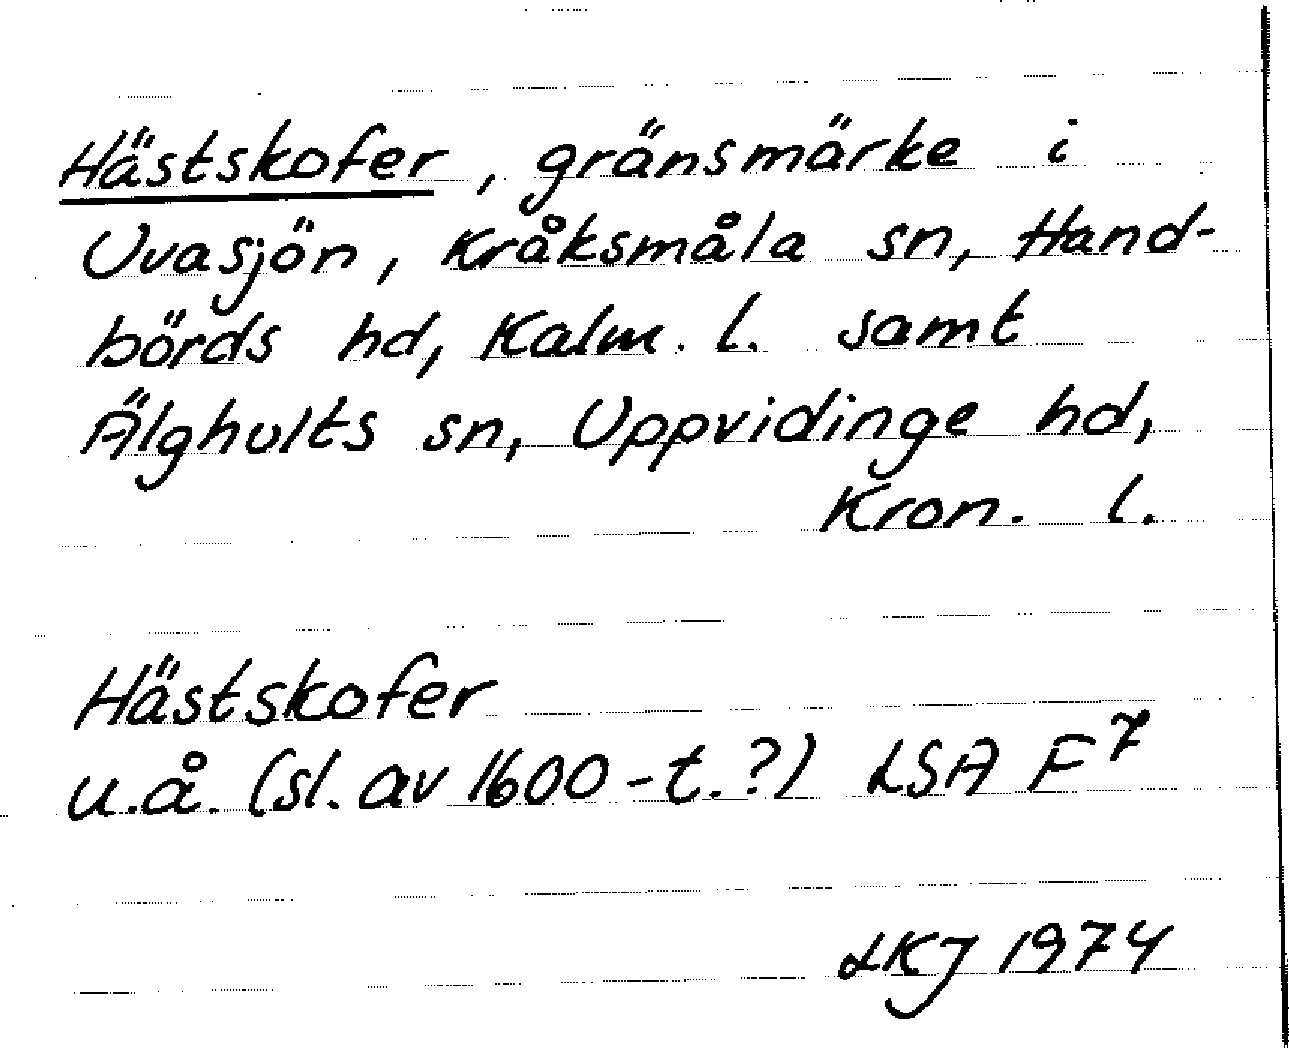 Hästskofer, gränsmärke i
Uvasjön, Kråksmåla sn, Hand-
börds hd, Kalm. l. samt
Älghults sn, Uppvidinge hd,
Kron. l.
Hästskofer
u.å. (sl. av 1600-t.?) LSA F⁷
LKJ 1974